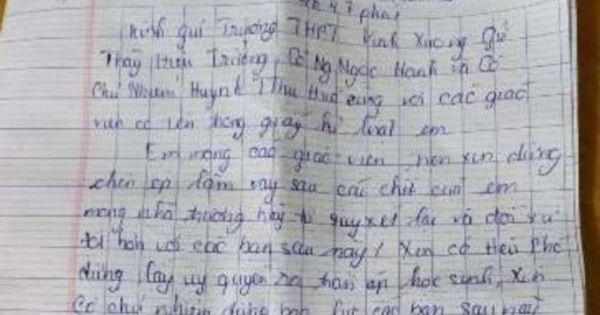 4 7 phút
Kính gửi Trường THPT Vĩnh Xương Gửi
Thầy Hiệu Trưởng, Cô Ng Ngọc Hạnh và Cô
Chủ Nhiệm Huỳnh Thu Huệ cùng với các giáo
viên có tên trong giấy kỉ luật em
Em mong các giáo viên nên xin đừng
chèn ép lắm vậy sau cái chết của em
mong nhà trường hãy quyết lại và đối xử
tốt hơn với các bạn sau này! Xin cô Hiệu Phó
đừng lấy uy quyền ra đàn áp học sinh, xin
cô chủ nhiệm đừng các bạn sau này